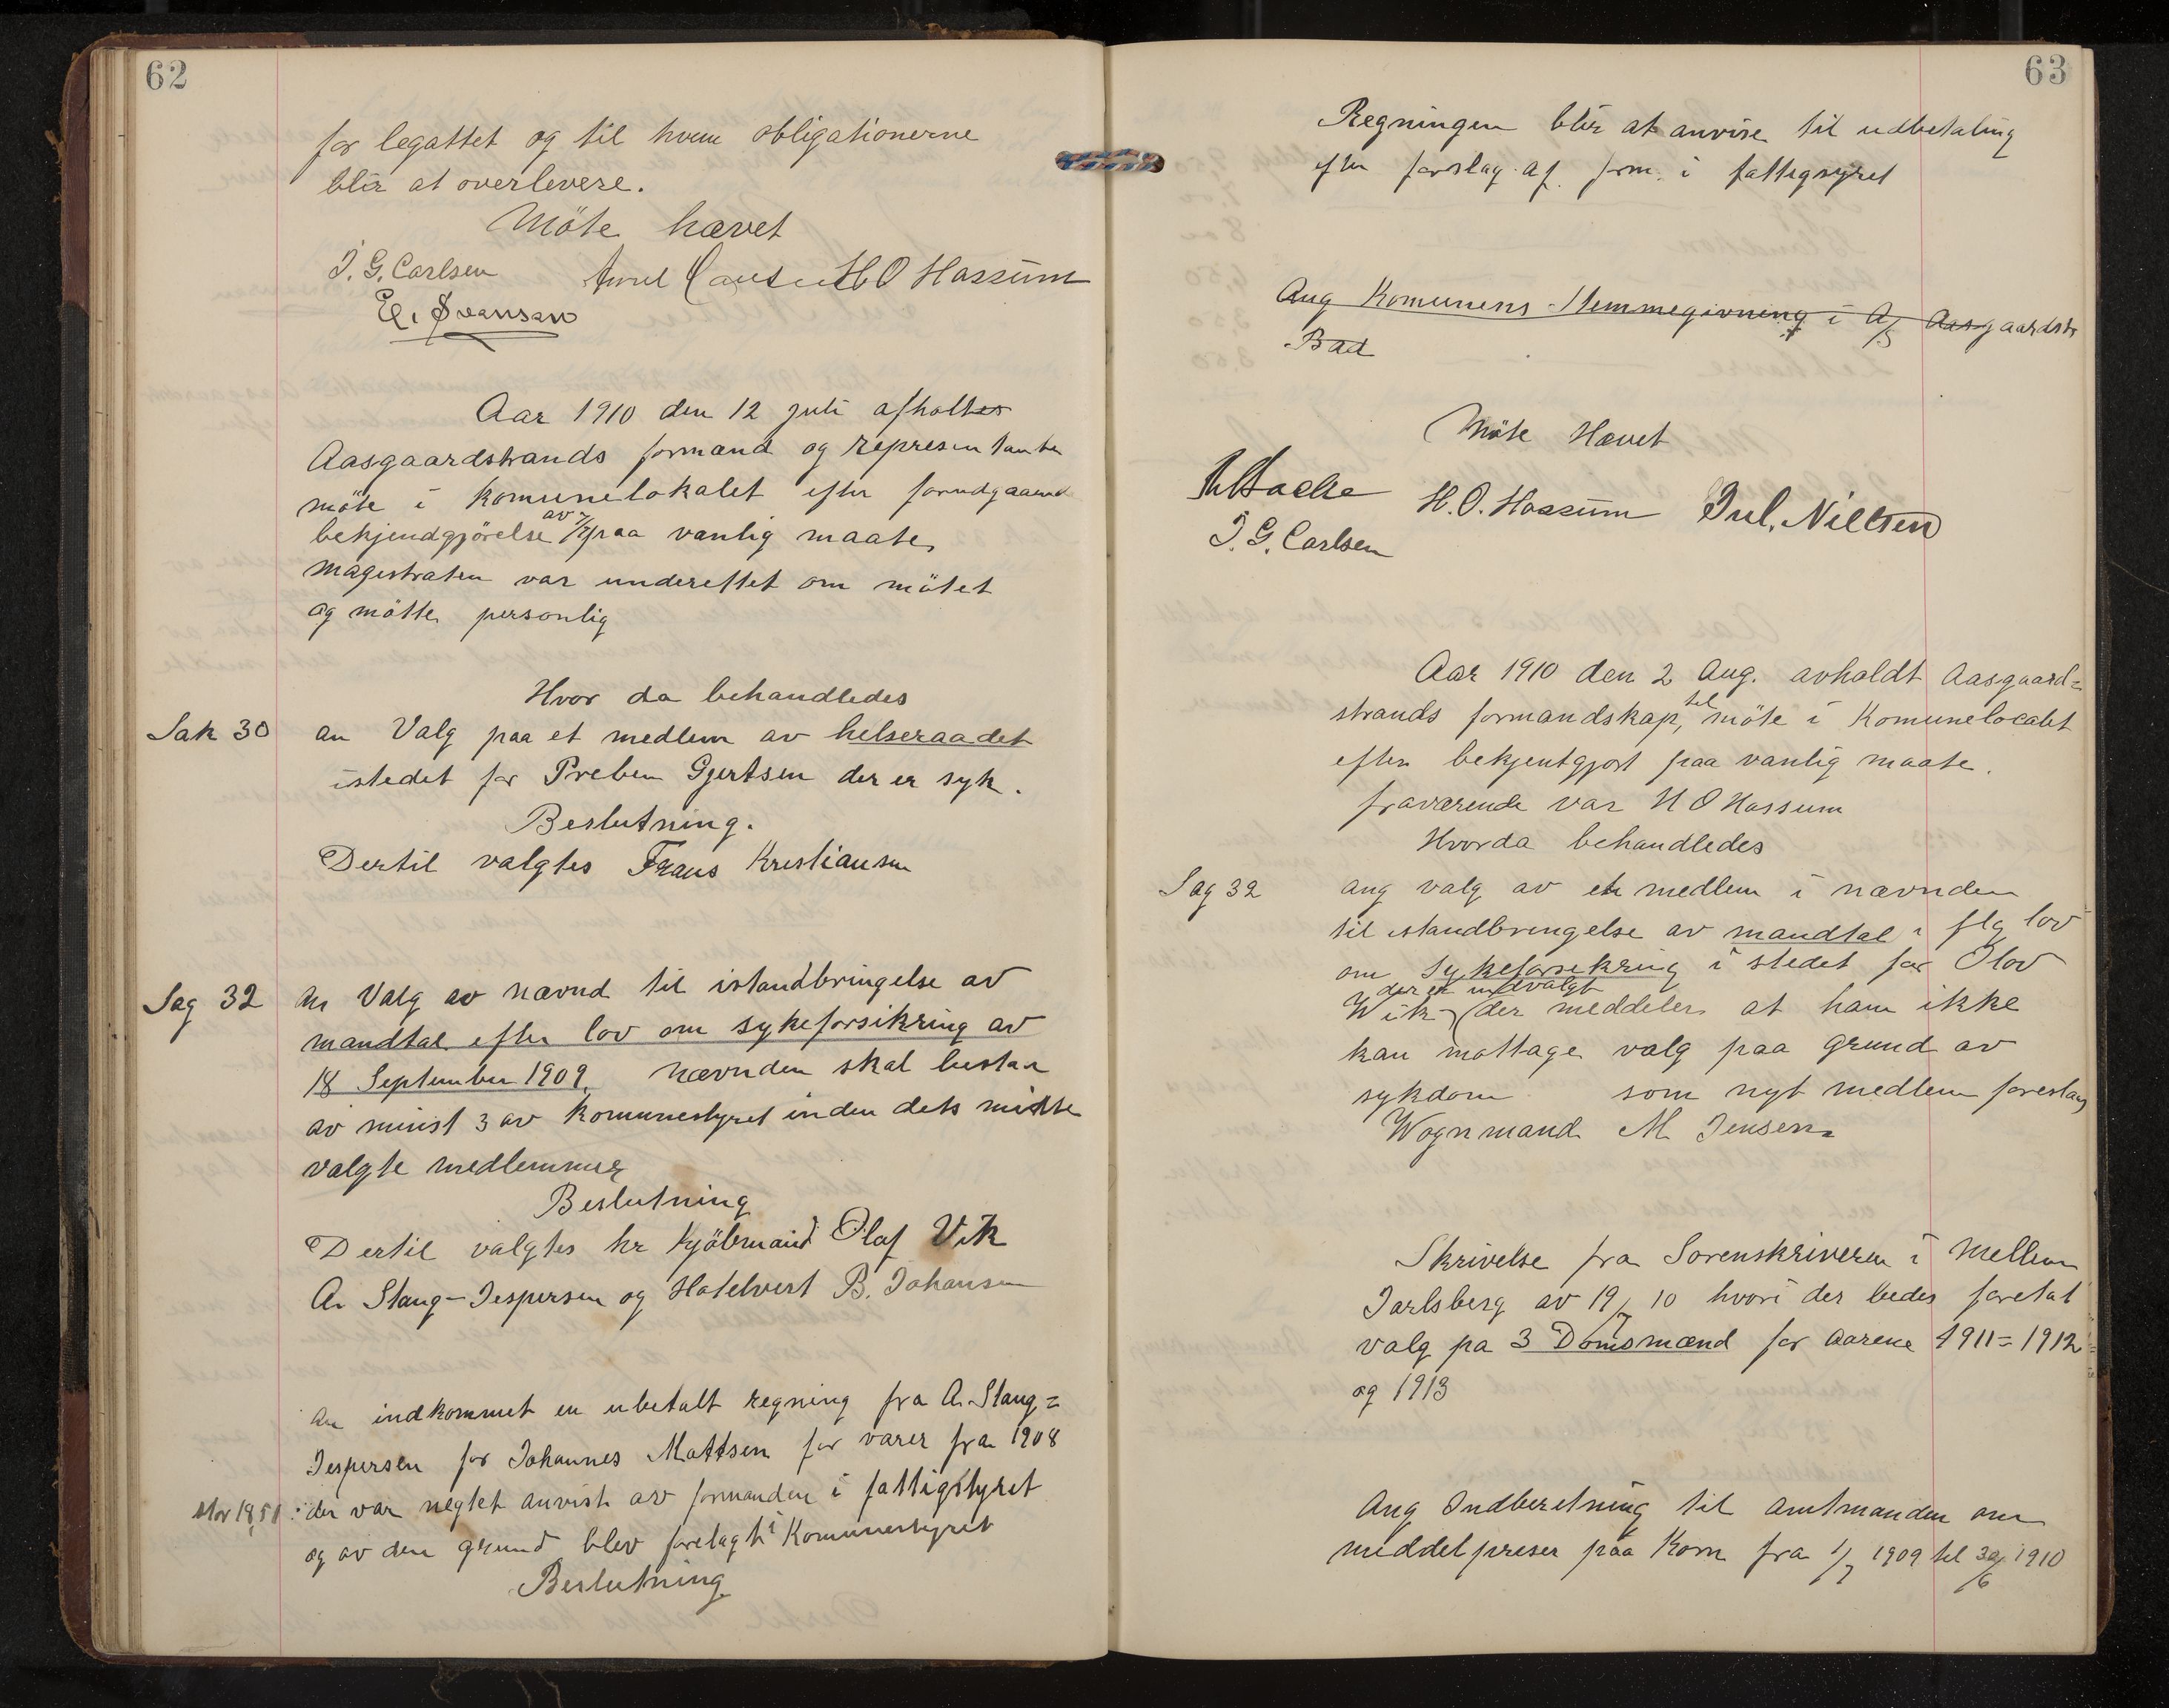 62
for legattet og til hvem obligationerne
blir at overlevere.
Möte hævet
J. G. Carlsen H O Hassum
El. Svensen
Aar 1910 den 12 juli afholtes
Aasgaardstrands formænd og representanter
möte i Komunelokalet efter forudgaaend
bekjendgjörelse av 7/7 paa vanlig maate,
magistraten var underettet om mötet
og mötte personlig
Hvor da behandledes
Sak 30 an Valg paa et medlem av helseraadet
istedet for Preben Gjertsen der er syk.
Beslutning.
Dertil valgtes Frans Kristiansen
Sag 32 An Valg av nævnd til istandbringelse av
mandtal efter lov om sykeforsikring av
18 September 1909, nævnden skal bestaa
av minst 3 av Komunestyret inden dets midte
valgte medlemmer
Beslutning
Dertil valgtes hr Kjöbmand Olaf Vik
A. Stang-Jespersen og Hotelvert B. Johansen
An indkommet en ubetalt regning fra A. Stang=
Jespersen for Johannes Mattsen for varer fra 1908
stor 18,51 der var negtet anvist av formanden i fattigstyret
og av den grund blev forelagt i Komunestyret
Beslutning
63
Regningen blir at anvise til udbetaling
efter forslag af form. i fattigsyret
Ang Komunens Stemmegivning i A/S Aasgaardstr
Bad
Möte Hævet
H. O. Hassum Jul. Nielsen
J. G. Carlsen
Aar 1910 den 2 Aug. avholdt Aasgaard=
strands formandskap, tel möte i Komunelocalet
efter bekjentgjort paa vanlig maate.
fraværende var H O Hassum
Hvorda behandledes
Sag 32 ang valg av et medlem i nævnden
til istandbringelse av mandtal i flg lov
om Sykeforsekring i stedet for Olav
der er indvalgt
Wik (der meddeler at han ikke
kan mottage valg paa grund av
sykdom som nyt medlem foreslaas
Wognmand M Jensen
Skrivelse fra Sorenskriveren i Mellem
Jarlsberg av 19/7 10 hvori der bedes foretat
valg pa 3 Domsmænd for Aarene 1911=1912
og 1913
Ang Indberetning til Amtmanden om
middelpreser paa Korn fra 1/7 1909 til 30/6 1910